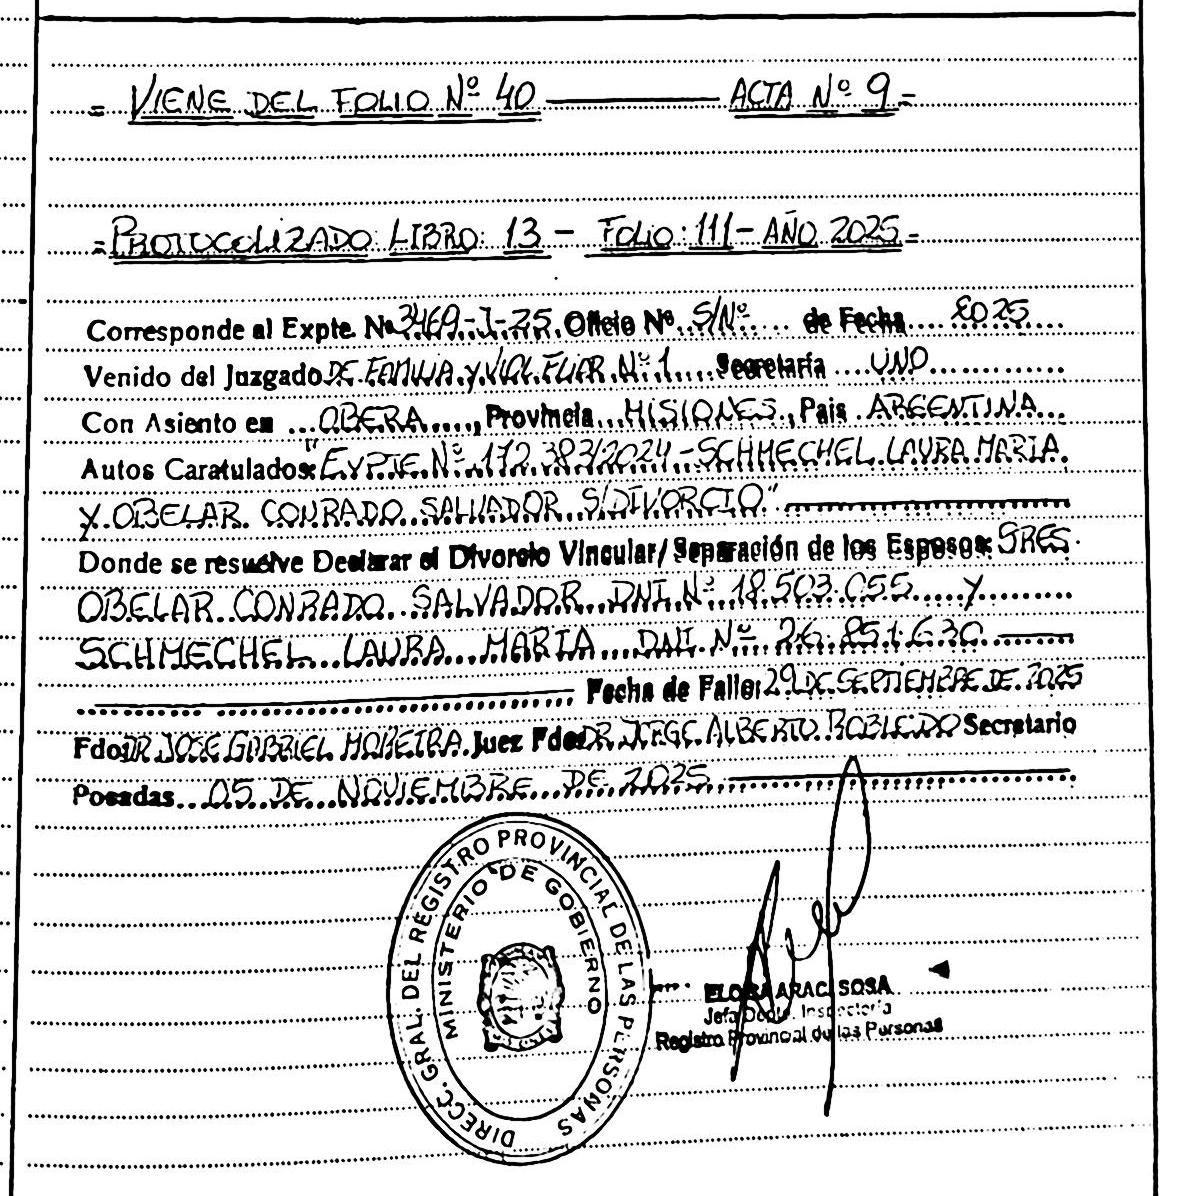 = VIENE DEL FOLIO Nº 40 ——— ACTA Nº 9 =
= PROTOCOLIZADO LIBRO: 13 - FOLIO: 111 - AÑO 2025 =
Corresponde al Expte. Nº 3469-I-25. Oficio Nº S/Nº de Fecha 2025
Venido del Juzgado DE FAMILIA Y VIOL FLIAR Nº 1 Secretaría UNO
Con Asiento en OBERA, Provincia MISIONES, Pais ARGENTINA
Autos Caratulados: "EXPTE. Nº 172.383/2024 - SCHMECHEL LAURA MARIA
Y OBELAR CONRADO SALVADOR S/DIVORCIO"
Donde se resuelve Declarar el Divorcio Vincular/Separación de los Esposos: SRES.
OBELAR CONRADO SALVADOR DNI Nº 18.503.055 y
SCHMECHEL LAURA MARIA DNI Nº 26.851.630
Fecha de Fallo: 29 DE SEPTIEMBRE DE 2025
Fdo: DR JOSE GABRIEL MOREIRA Juez Fdo: DR JORGE ALBERTO ROBLEDO Secretario
Posadas 05 DE NOVIEMBRE DE 2025
DIRECC. GRAL. DEL REGISTRO PROVINCIAL DE LAS PERSONAS
MINISTERIO DE GOBIERNO
SOSA
Jefa Dpto. Inspectoría
Registro Provincial de las Personas